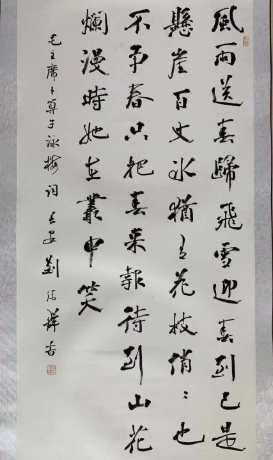 風雨送春歸飛雪迎春到已是
懸崖百丈冰猶有花枝俏〻也
不争春只把春来報待到山花
爛漫時她在叢中笑
毛主席卜算子詠梅詞 劉 祥書